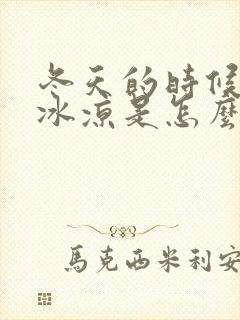 冬天的時候
冰涼是怎麼
馬克西米利安